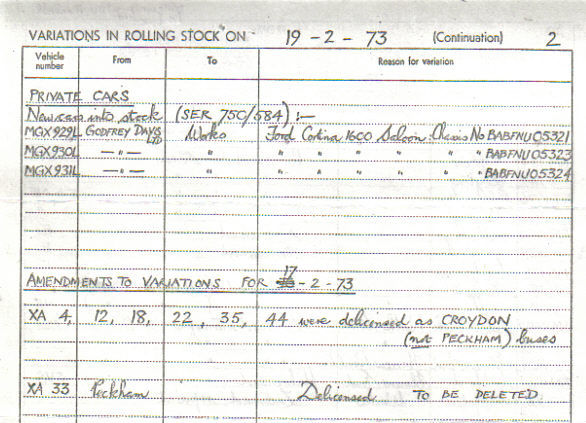 VARIATIONS IN ROLLING STOCK ON 19-2-73 (Continuation) 2
Vehicle number From To Reason for variation
PRIVATE CARS
New cars into stock (SER 750/584) :-
MGX929L GODFREY DAVIS LTD Works Ford Cortina 1600 Saloon. Chassis No BABFNU05321
MGX930L — " — " " " " " " " BABFNU05323
MGX931L — " — " " " " " " " BABFNU05324
AMENDMENTS TO VARIATIONS FOR 17-2-73
XA 4, 12, 18, 22, 35, 44 were delicensed as CROYDON
(not PECKHAM) buses
XA 33 Peckham Delicensed TO BE DELETED